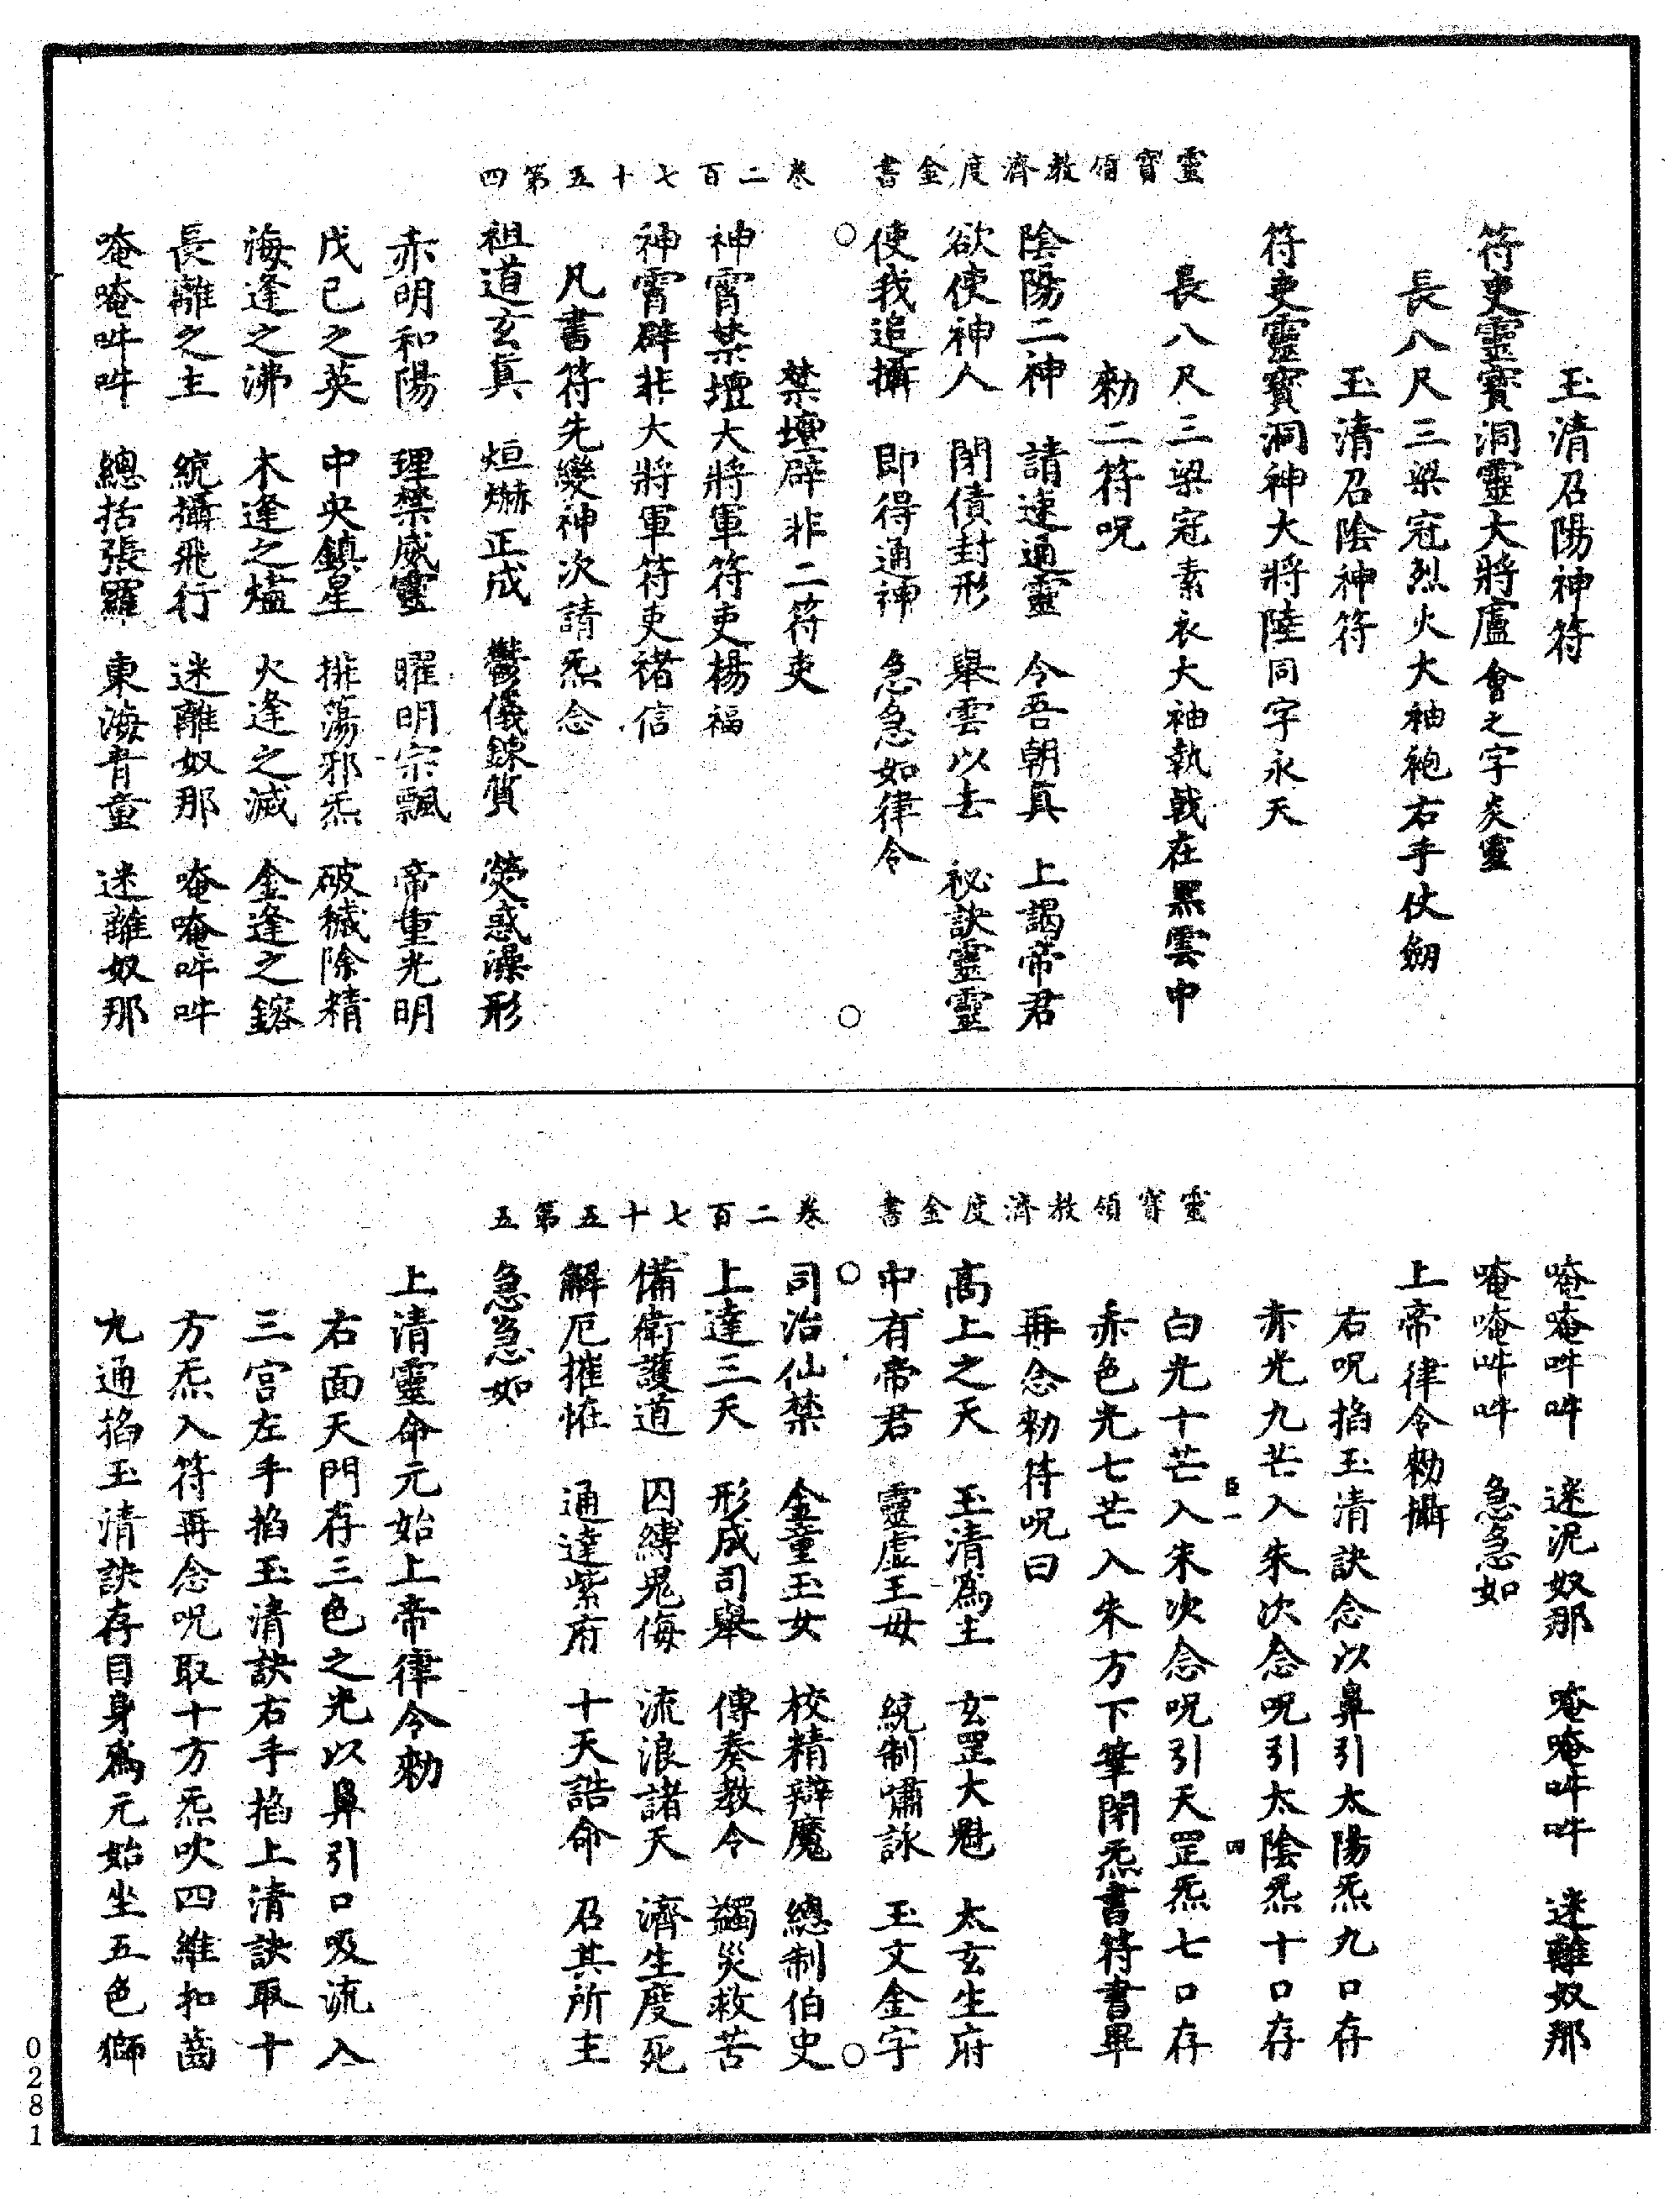 靈寶領教濟度金書 卷二百七十五第四
玉清召陽神符
符吏靈寶洞靈大將盧會之字炎靈
長八尺三梁冠烈火大袖袍右手仗劒
玉清召陰神符
符吏靈寶洞神大將陸同字永天
長八尺三梁冠素衣大袖執戟在黑雲中
勑二符呪
陰陽二神 請速通靈 令吾朝真 上謁帝君
欲使神人 閉債封形 舉雲以去 祕訣靈靈
使我追攝 即得通神 急急如律令
禁壇辟非二符吏
神霄禁壇大將軍符吏楊福
神霄辟非大將軍符吏禇信
凡書符先變神次請炁念
祖道玄真 烜爀正成 鬱儀鍊質 熒惑澡形
赤明和陽 理禁威靈 曜明宗飄 帝重光明
戊己之英 中央鎮星 排蕩邪炁 破穢除精
海逢之沸 木逢之爐 火逢之滅 金逢之鎔
長離之主 統攝飛行 迷離奴那 唵唵吽吽
唵唵吽吽 總括張羅 東海青童 迷離奴那
靈寶領教濟度金書 卷二百七十五第五
唵唵吽吽 迷泥奴那 唵唵吽吽 迷離奴那
唵唵吽吽 急急如
上帝律令勑攝
右呪掐玉清訣念以鼻引太陽炁九口存
赤光九芒入朱次念呪引太陰炁十口存
臣一 四
白光十芒入朱次念呪引天罡炁七口存
赤色光七芒入朱方下筆閉炁書符書畢
再念勑符呪曰
高上之天 玉清爲主 玄罡大魁 太玄生府
中有帝君 靈虛王毋 統制嘯詠 玉文金字
司治仙禁 金童玉女 校精辯魔 總制伯史
上達三天 形成司舉 傳奏教令 蠲災救苦
備衛護道 囚縛鬼侮 流浪諸天 濟生度死
解厄摧恠 通達紫府 十天誥命 召其所主
急急如
上清靈命元始上帝律令勑
右面天門存三色之光以鼻引口吸流入
三宮左手掐玉清訣右手掐上清訣取十
方炁入符再念呪取十方炁吹四維扣齒
九通掐玉清訣存目身爲元始坐五色獅
0281